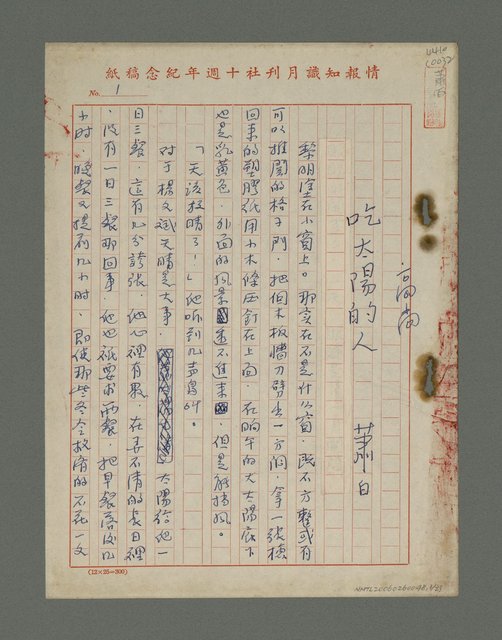 情報知識月刊社十週年紀念稿紙
No. 1
蕭白
高尚
吃太陽的人 蕭白
黎明塗在小窗上。那實在不是什么窗,既不方整或有
可以推開的格子門,把個木板牆刀劈出一方洞,拿一張撿
回來的塑膠紙用小木條四釘在上面,在晌午的大太陽底下
也是乳黃色,外面的風景透不進來,但是能擋風。
「天該放晴了!」他听到几声鳥叫。
對于楊文斌天晴是大事,太陽給他一
日三餐,這有几分誇张,他心裡有數,在弄不清的長日裡
,没有一日三餐那回事,他也祇要求兩餐,把早餐落後几
小时,晚餐又提前几小时,即使那些冬令救濟的不花一文
(12×25=300)
NMTL20060260098, 1/33